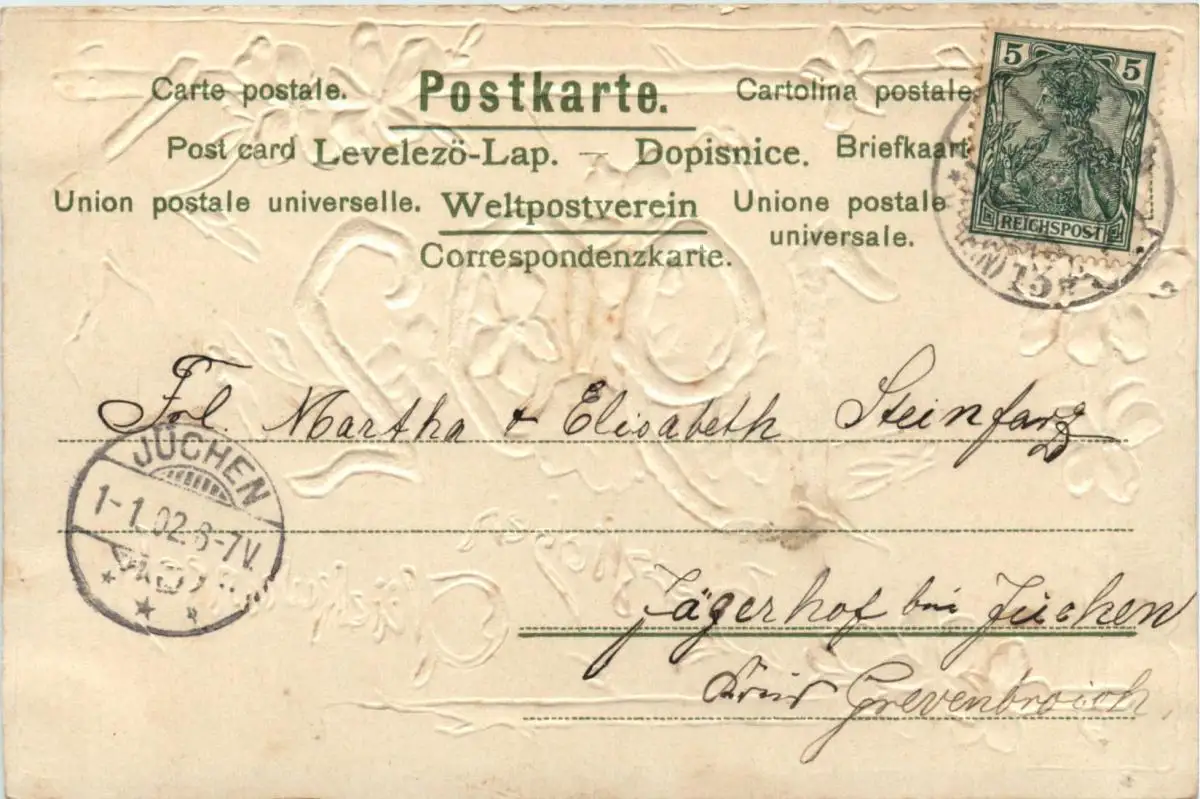 Carte postale. Postkarte. Cartolina postale
Post card Levelező-Lap. — Dopisnice. Briefkaart
Union postale universelle. Weltpostverein Unione postale universale.
Correspondenzkarte.
5 5
REICHSPOST
Frl. Martha & Elisabeth Steinfarz
JÜCHEN
1-1.02.6-7V.
Jägerhof bei Jüchen
Kreis Grevenbroich